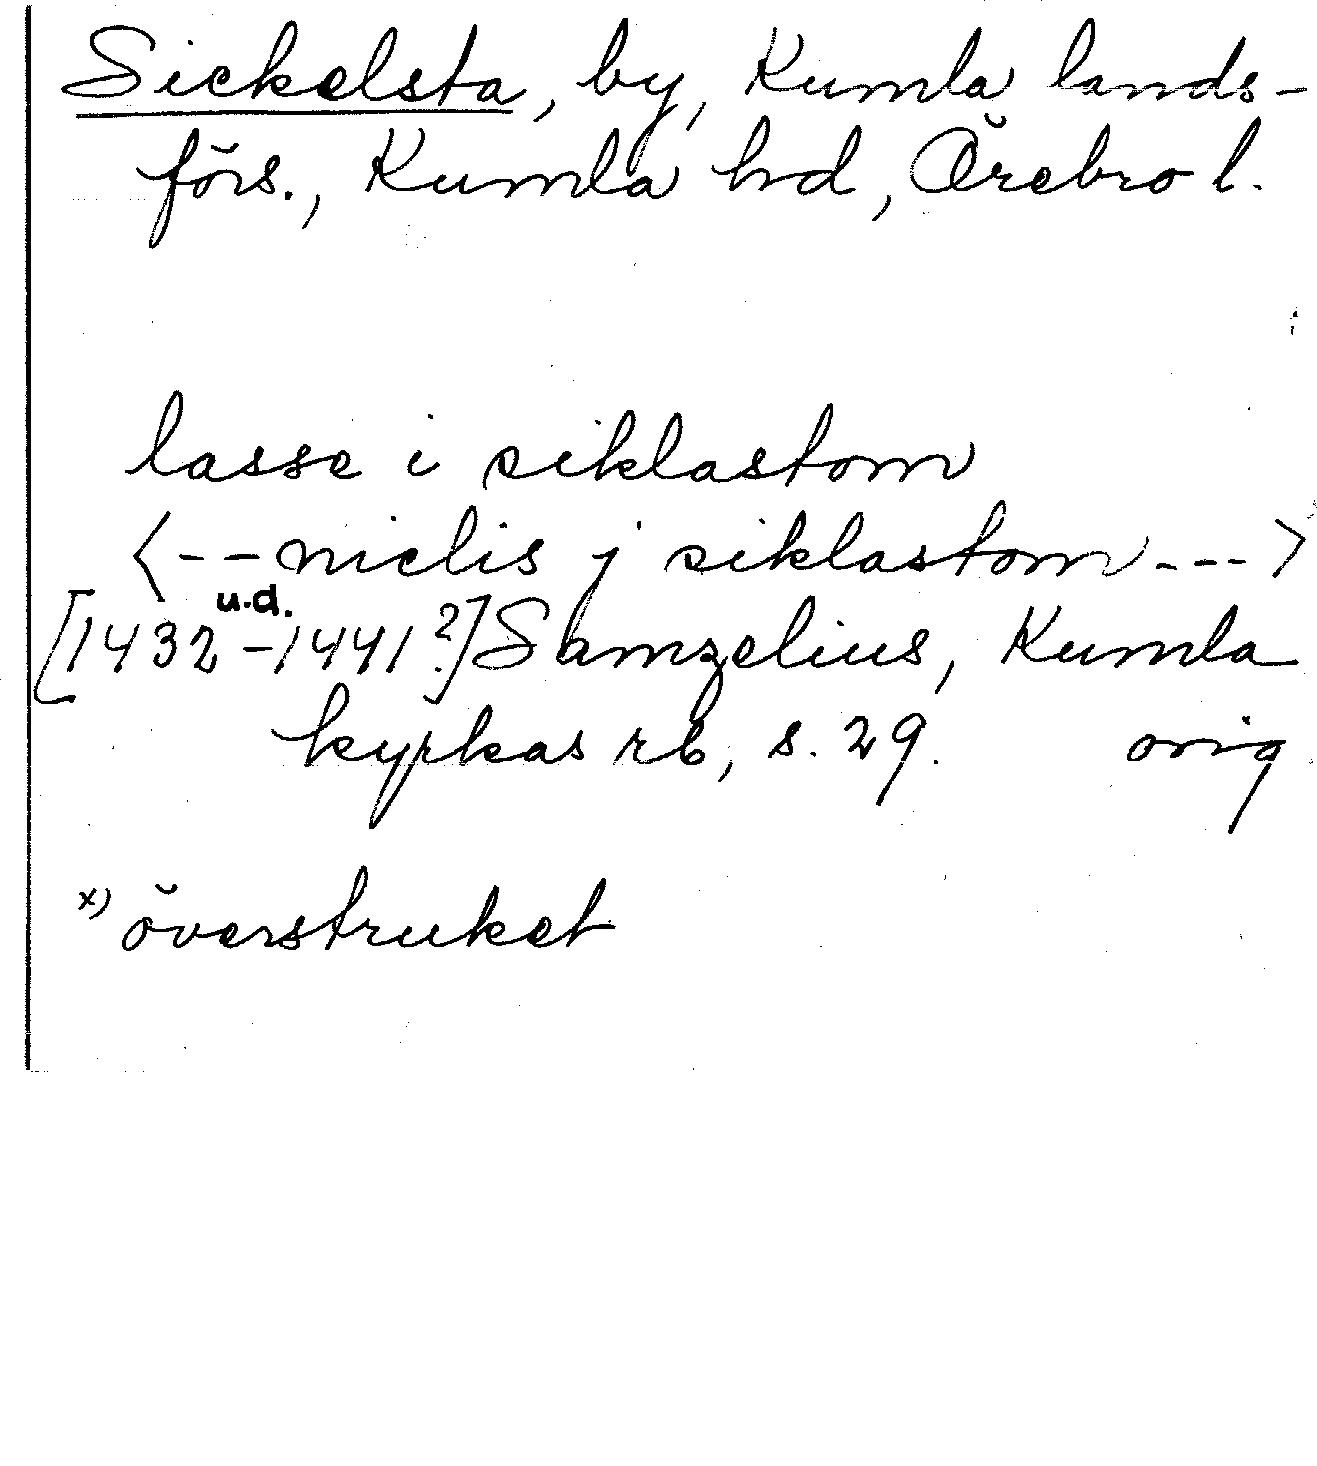 Sickelsta, by, Kumla lands-
förs., Kumla hd, Örebro l.
lasse i siklastom
<--nielis j siklastom--->
u.d.
[1432-1441?] Samzelius, Kumla
kyrkas rb, s. 29. orig
x) överstruket